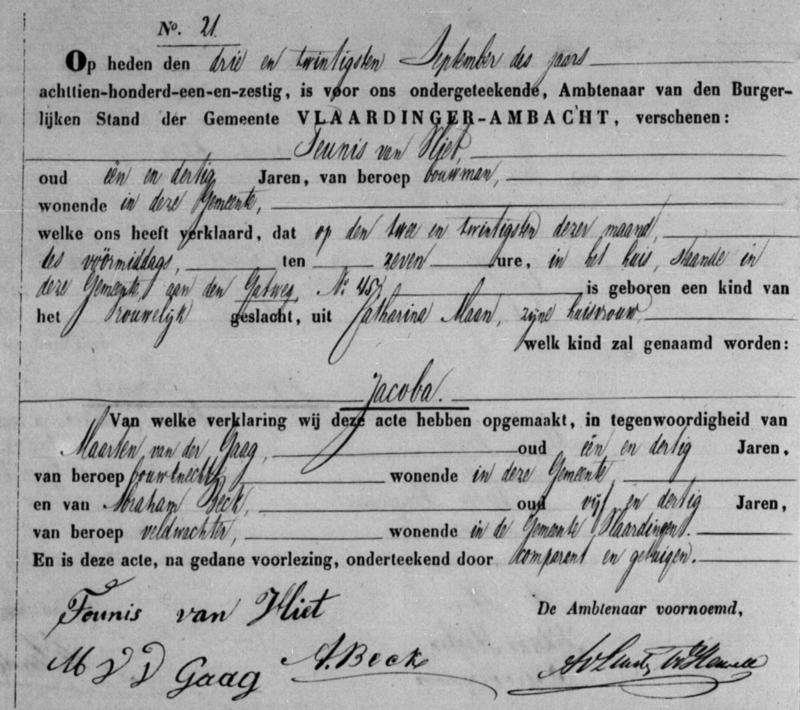 No. 21.
Op heden den drie en twintigsten September des jaars
achttien-honderd-een-en-zestig, is voor ons ondergeteekende, Ambtenaar van den Burger-
lijken Stand der Gemeente VLAARDINGER-AMBACHT, verschenen:
Teunis van Vliet,
oud één en dertig Jaren, van beroep bouwman,
wonende in deze Gemeente,
welke ons heeft verklaard, dat op den twee en twintigsten dezer maand,
des vóórmiddags, ten zeven ure, in het huis, staande in
deze Gemeente aan den Gatweg No. 457 is geboren een kind van
het vrouwelijk geslacht, uit Catharina Maan, zijne huisvrouw
welk kind zal genaamd worden:
Jacoba.
Van welke verklaring wij deze acte hebben opgemaakt, in tegenwoordigheid van
Maarten van der Gaag, oud één en dertig Jaren,
van beroep bouwknecht, wonende in deze Gemeente
en van Abraham Beck, oud vijf en dertig Jaren,
van beroep veldwachter, wonende in de Gemeente Vlaardingen.
En is deze acte, na gedane voorlezing, onderteekend door comparant en getuigen.
Teunis van Vliet
De Ambtenaar voornoemd,
M V D Gaag A. Beck